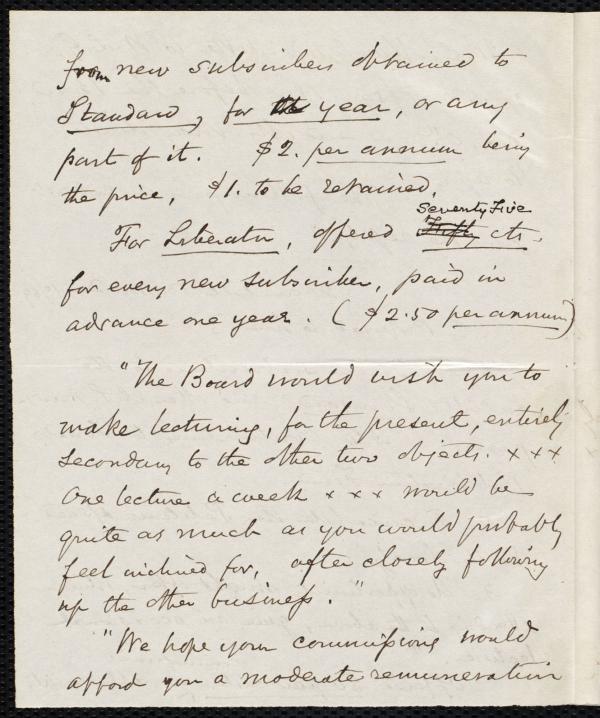 from new subscribers obtained to
Standard, for the year, or any
part of it. $2. per annum being
the price, $1. to be retained.
Seventy Five
For Liberator, offered Fifty cts.
for every new subscriber, paid in
advance one year. ($2.50 per annum)
"The Board would wish you to
make lecturing, for the present, entirely
secondary to the other two objects. x x x
One lecture a week x x x would be
quite as much as you would probably
feel inclined for, after closely following
up the other business."
"We hope your commissions would
afford you a moderate remuneration